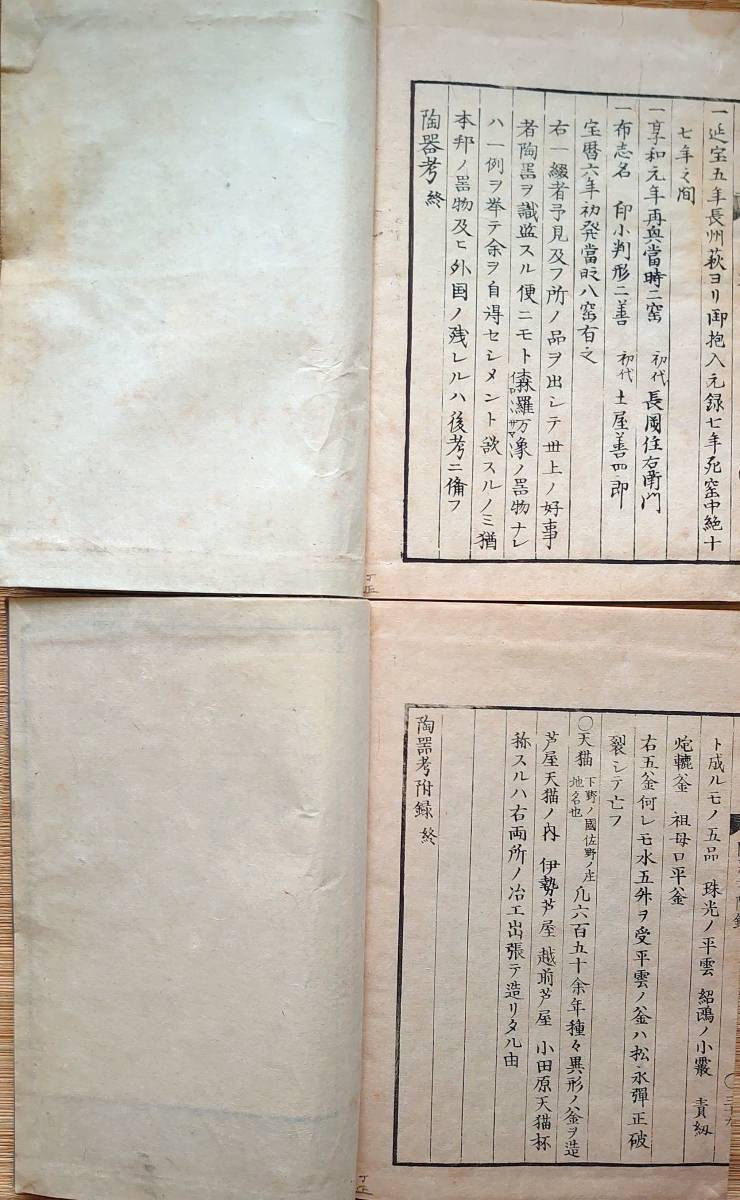 一延宝五年長州萩ヨリ御抱入元録七年死窑中絶十
七年之间
一享和元年再興當時二窑 初代長岡住右衛門
一布志名 印小判形ニ善 初代土屋善四郎
宝暦六年初発當時八窑有之
右一綴者予見及フ所ノ品ヲ出シテ世上ノ好事
者陶器ヲ識監スル便ニモト森羅万像ノ器物ナレ
ハ一例ヲ挙テ余ヲ自得セシメント談スルノミ猶
本邦ノ器物及ヒ外国ノ残レルハ後考ニ備フ
陶器考 終
ト成ルモノ五品 珠光ノ平雲 紹鷗ノ小霰 責紐
炮轆釡 祖母口平釡
右五釡何レモ水五舛ヲ受平雲ノ釡ハ松永弾正破
裂シテ亡フ
〇天猫 下野ノ國佐野ノ庄地名也 凡六百五十余年種々異形ノ釡ヲ造
芦屋天猫ノ内 伊勢芦屋 越前芦屋 小田原天猫杯
称スルハ右両所ノ冶工出張テ造リタル由
陶器考附録 終